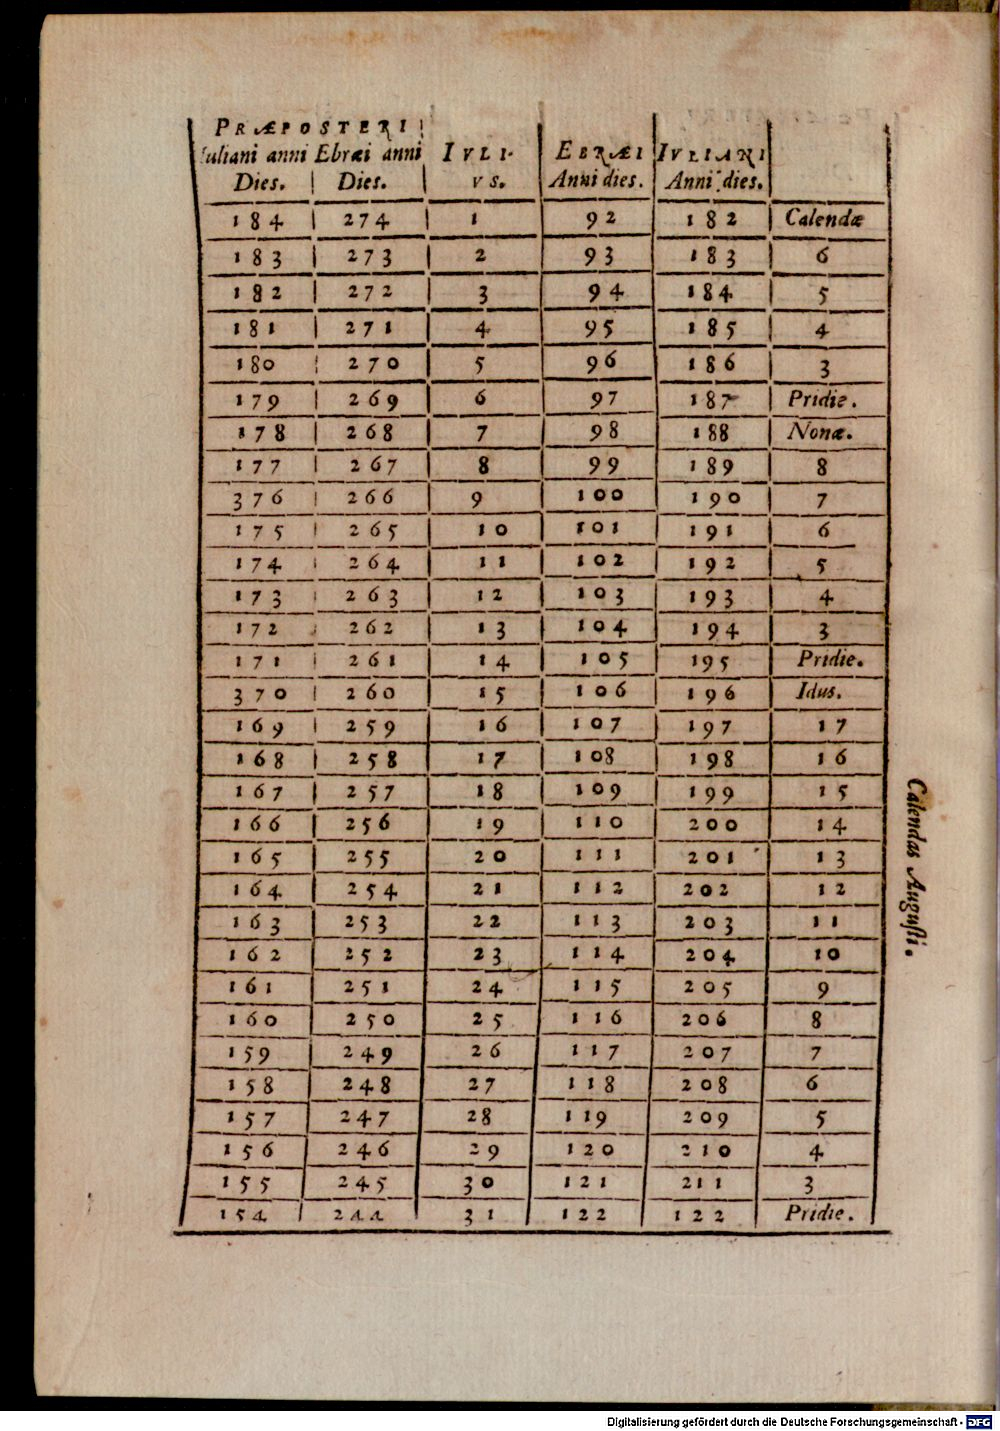 PRÆPOSTERI
Iuliani anni Ebræi anni IVLI- EBRÆI IVLIANI
Dies. Dies. VS. Anni dies. Anni dies.
184 274 1 92 182 Calendæ
183 273 2 93 183 6
182 272 3 94 184 5
181 271 4 95 185 4
180 270 5 96 186 3
179 269 6 97 187 Pridie.
178 268 7 98 188 Nonæ.
177 267 8 99 189 8
376 266 9 100 190 7
175 265 10 101 191 6
174 264 11 102 192 5
173 263 12 103 193 4
172 262 13 104 194 3
171 261 14 105 195 Pridie.
370 260 15 106 196 Idus.
169 259 16 107 197 17
168 258 17 108 198 16
167 257 18 109 199 15
166 256 19 110 200 14
165 255 20 111 201 13
164 254 21 112 202 12
163 253 22 113 203 11
162 252 23 114 204 10
161 251 24 115 205 9
160 250 25 116 206 8
159 249 26 117 207 7
158 248 27 118 208 6
157 247 28 119 209 5
156 246 29 120 210 4
155 245 30 121 211 3
154 244 31 122 122 Pridie.
Calendas Augusti.
Digitalisierung gefördert durch die Deutsche Forschungsgemeinschaft - DFG